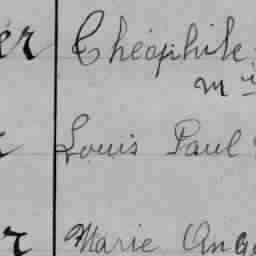 er Théophile
Louis Paul
r Marie Ang